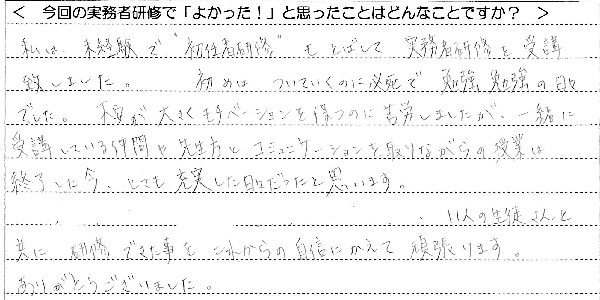 < 今回の実務者研修で「よかった！」と思ったことはどんなことですか？ >
私は、未経験で"初任者研修"もとばして 実務者研修を受講
致しました。 初めは ついていくのに必死で 勉強勉強の日々
でした。 不安が大きくモチベーションを保つのに苦労しましたが、一緒に
受講している仲間や先生方とコミュニケーションを取りながらの授業は
終了した今、とても充実した日々だったと思います。
11人の生徒さんと
共に 研修できた事を これからの自信にかえて 頑張ります。
ありがとうございました。